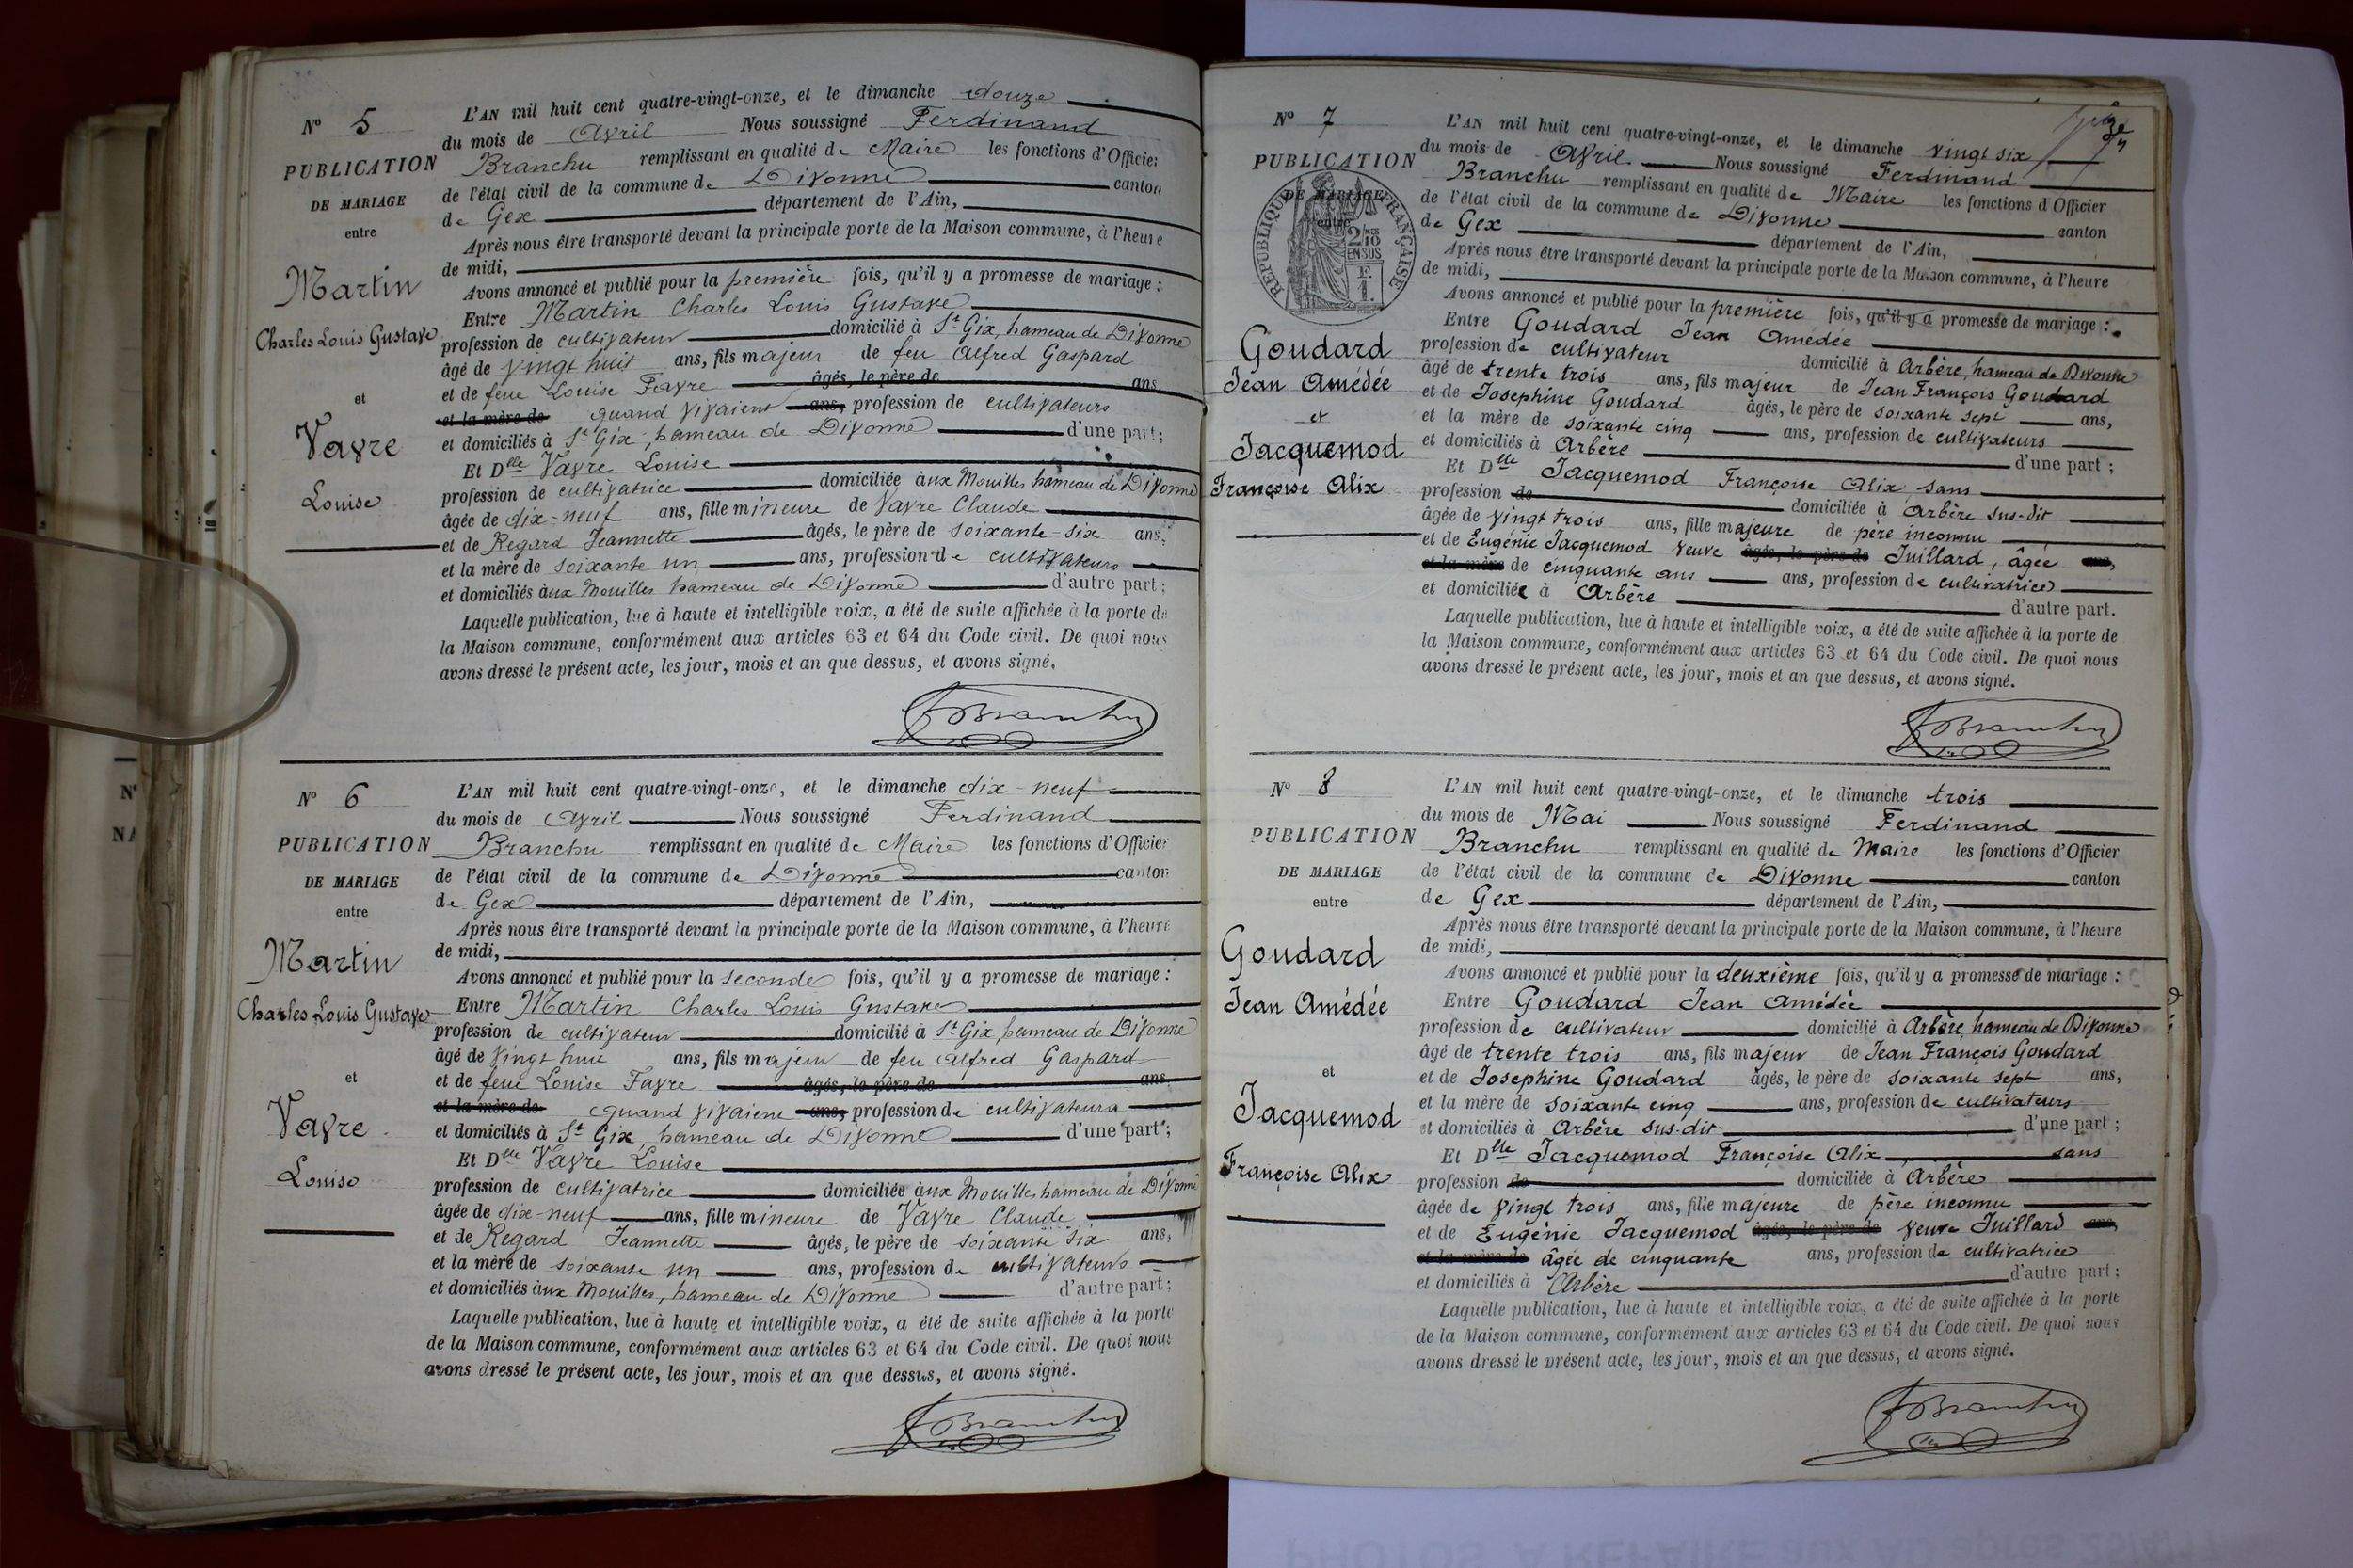 N° 5
PUBLICATION
DE MARIAGE
entre
Martin
Charles Louis Gustave
et
Vavre
Louise
L'AN mil huit cent quatre-vingt-onze, et le dimanche douze
du mois de Avril Nous soussigné Ferdinand
Branchu remplissant en qualité de Maire les fonctions d'Officier
de l'état civil de la commune de Divonne canton
de Gex département de l'Ain,
Après nous être transporté devant la principale porte de la Maison commune, à l'heure
de midi,
Avons annoncé et publié pour la première fois, qu'il y a promesse de mariage :
Entre Martin Charles Louis Gustave
profession de cultivateur domicilié à St Gix, hameau de Divonne
âgé de vingt huit ans, fils majeur de feu Alfred Gaspard
et de feue Louise Favre âgés, le père de ans,
et la mère de quand vivaient ans, profession de cultivateurs
et domiciliés à St Gix, hameau de Divonne d'une part;
Et Dlle Vavre Louise
profession de cultivatrice domiciliée aux Mouilles hameau de Divonne
âgée de dix-neuf ans, fille mineure de Vavre Claude
et de Regard Jeannette âgés, le père de soixante-six ans,
et la mère de soixante un ans, profession de cultivateurs
et domiciliés aux Mouilles hameau de Divonne d'autre part;
Laquelle publication, lue à haute et intelligible voix, a été de suite affichée à la porte de
la Maison commune, conformément aux articles 63 et 64 du Code civil. De quoi nous
avons dressé le présent acte, les jour, mois et an que dessus, et avons signé.
FBranchu
N° 6
PUBLICATION
DE MARIAGE
entre
Martin
Charles Louis Gustave
et
Vavre
Louise
L'AN mil huit cent quatre-vingt-onze, et le dimanche dix-neuf
du mois de Avril Nous soussigné Ferdinand
Branchu remplissant en qualité de Maire les fonctions d'Officier
de l'état civil de la commune de Divonne canton
de Gex département de l'Ain,
Après nous être transporté devant la principale porte de la Maison commune, à l'heure
de midi,
Avons annoncé et publié pour la seconde fois, qu'il y a promesse de mariage :
Entre Martin Charles Louis Gustave
profession de cultivateur domicilié à St Gix, hameau de Divonne
âgé de vingt huit ans, fils majeur de feu Alfred Gaspard
et de feue Louise Favre âgés, le père de ans,
et la mère de quand vivaient ans, profession de cultivateurs
et domiciliés à St Gix, hameau de Divonne d'une part;
Et Dlle Vavre Louise
profession de cultivatrice domiciliée aux Mouilles hameau de Divonne
âgée de dix-neuf ans, fille mineure de Vavre Claude
et de Regard Jeannette âgés, le père de soixante six ans,
et la mère de soixante un ans, profession de cultivateurs
et domiciliés aux Mouilles, hameau de Divonne d'autre part;
Laquelle publication, lue à haute et intelligible voix, a été de suite affichée à la porte
de la Maison commune, conformément aux articles 63 et 64 du Code civil. De quoi nous
avons dressé le présent acte, les jour, mois et an que dessus, et avons signé.
FBranchu
N° 7
PUBLICATION
DE MARIAGE
entre
RÉPUBLIQUE FRANÇAISE
2/10
EN SUS
Goudard
Jean Amédée
et
Jacquemod
Françoise Alix
L'AN mil huit cent quatre-vingt-onze, et le dimanche vingt six
du mois de Avril Nous soussigné Ferdinand
Branchu remplissant en qualité de Maire les fonctions d'Officier
de l'état civil de la commune de Divonne canton
de Gex département de l'Ain,
Après nous être transporté devant la principale porte de la Maison commune, à l'heure
de midi,
Avons annoncé et publié pour la première fois, qu'il y a promesse de mariage :
Entre Goudard Jean Amédée
profession de cultivateur domicilié à Arbère, hameau de Divonne
âgé de trente trois ans, fils majeur de Jean François Goudard
et de Josephine Goudard âgés, le père de soixante sept ans,
et la mère de soixante cinq ans, profession de cultivateurs
et domiciliés à Arbère d'une part ;
Et Dlle Jacquemod Françoise Alix, sans
profession de domiciliée à Arbère sus-dit
âgée de vingt trois ans, fille majeure de père inconnu
et de Eugénie Jacquemod veuve âgés, le père de Juillard, âgée ans,
et la mère de cinquante ans ans, profession de cultivatrice
et domiciliée à Arbère d'autre part.
Laquelle publication, lue à haute et intelligible voix, a été de suite affichée à la porte de
la Maison commune, conformément aux articles 63 et 64 du Code civil. De quoi nous
avons dressé le présent acte, les jour, mois et an que dessus, et avons signé.
FBranchu
N° 8
PUBLICATION
DE MARIAGE
entre
Goudard
Jean Amédée
et
Jacquemod
Françoise Alix
L'AN mil huit cent quatre-vingt-onze, et le dimanche trois
du mois de Mai Nous soussigné Ferdinand
Branchu remplissant en qualité de Maire les fonctions d'Officier
de l'état civil de la commune de Divonne canton
de Gex département de l'Ain,
Après nous être transporté devant la principale porte de la Maison commune, à l'heure
de midi,
Avons annoncé et publié pour la deuxième fois, qu'il y a promesse de mariage :
Entre Goudard Jean Amédée
profession de cultivateur domicilié à Arbère, hameau de Divonne
âgé de trente trois ans, fils majeur de Jean François Goudard
et de Josephine Goudard âgés, le père de soixante sept ans,
et la mère de soixante cinq ans, profession de cultivateurs
et domiciliés à Arbère sus-dit d'une part ;
Et Dlle Jacquemod Françoise Alix sans
profession de domiciliée à Arbère
âgée de vingt trois ans, fille majeure de père inconnu
et de Eugénie Jacquemod âgés, le père de veuve Juillard ans,
et la mère de âgée de cinquante ans, profession de cultivatrice
et domiciliés à Arbère d'autre part ;
Laquelle publication, lue à haute et intelligible voix, a été de suite affichée à la porte
de la Maison commune, conformément aux articles 63 et 64 du Code civil. De quoi nous
avons dressé le présent acte, les jour, mois et an que dessus, et avons signé.
FBranchu